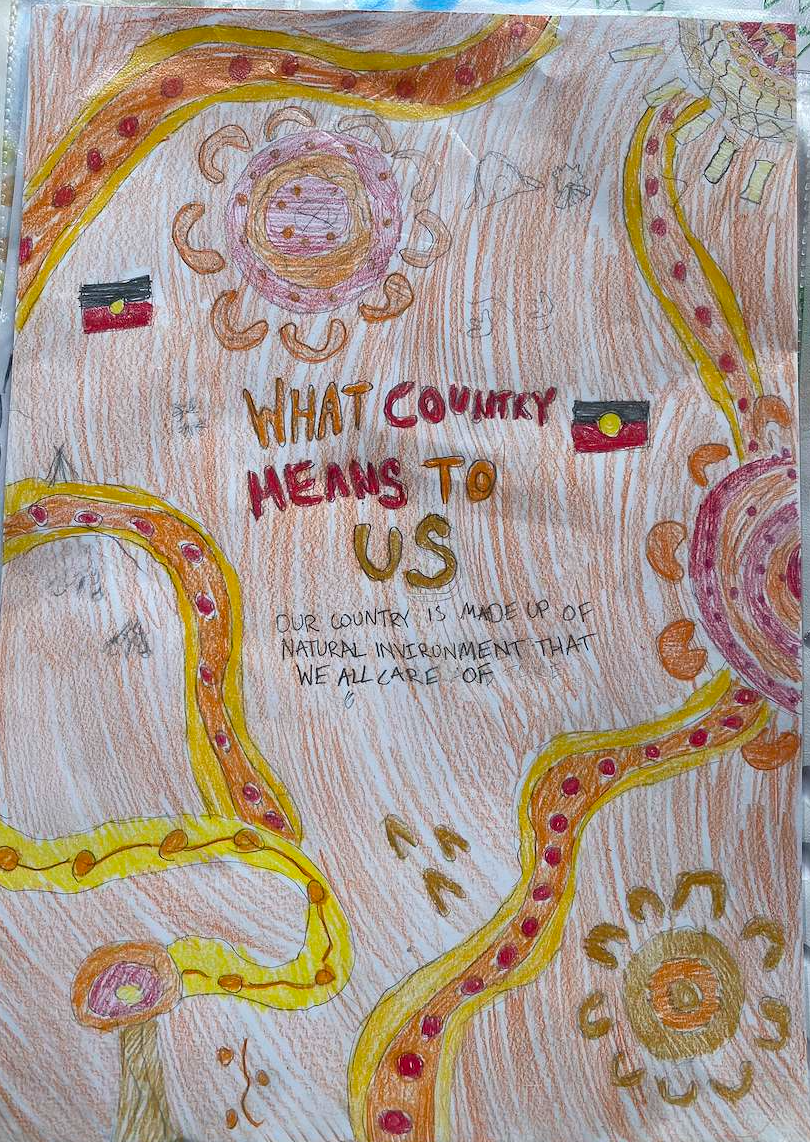 WHAT COUNTRY
MEANS TO
US
OUR COUNTRY IS MADE UP OF
NATURAL INVIRONMENT THAT
WE ALL CARE OF